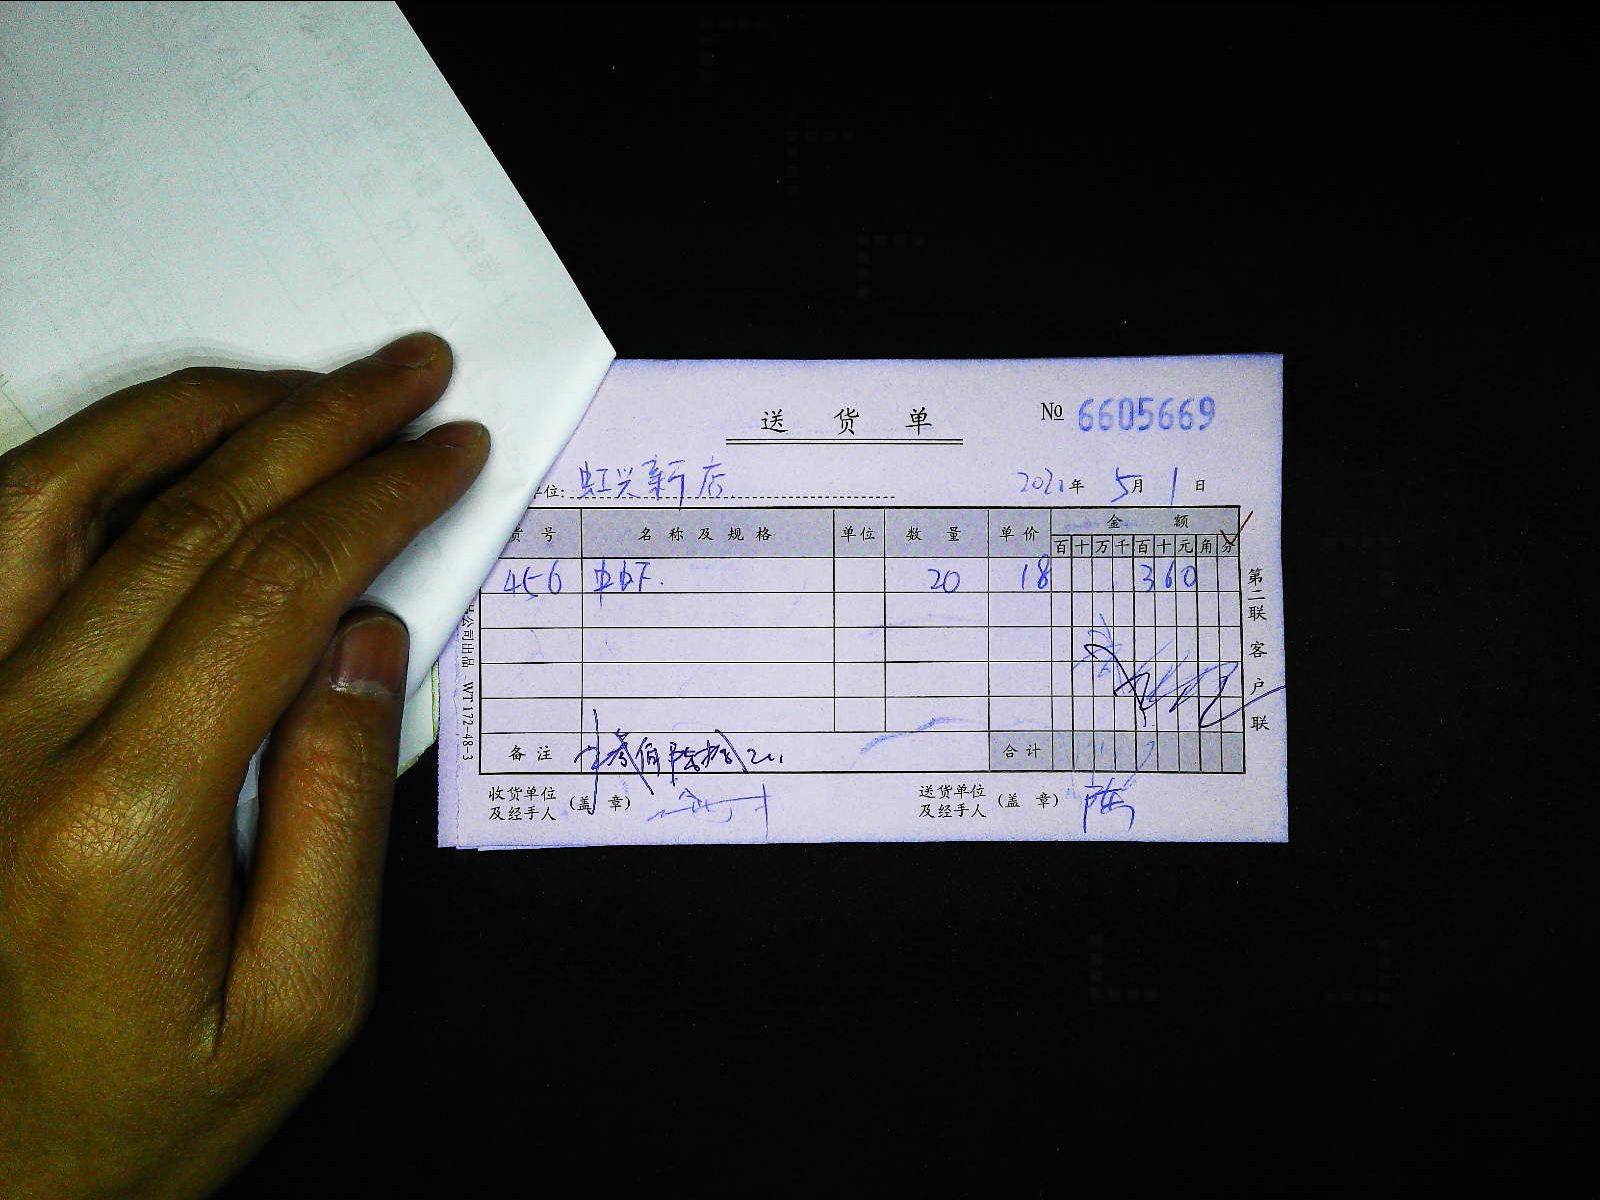 送货单 № 6605669
单位: 虹兴新店 2021年 5月 1日
货号 名称及规格 单位 数量 单价 金额
百 十 万 千 百 十 元 角 分
456 中虾. 20 18 360
备注 合计
收货单位及经手人 (盖章) 送货单位及经手人 (盖章) 陈
第二联 客户联
公司出品 WT172-48-3